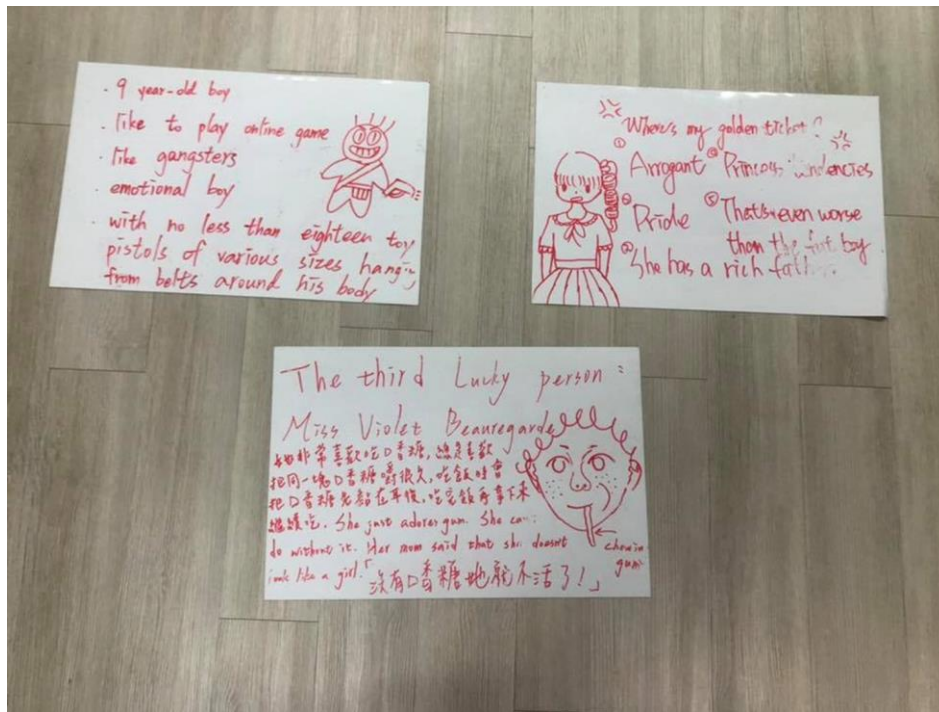 · 9 year-old boy
· like to play online game
· like gangsters
· emotional boy
· with no less than eighteen toy
pistols of various sizes hanging
from belts around his body
Where's my golden ticket?
① Arrogant
② Pride
③ She has a rich father.
④ Princess tendencies
⑤ That's even worse
than the fat boy
The third Lucky person:
Miss Violet Beauregarde
她非常喜歡吃口香糖,總是喜歡
把同一塊口香糖嚼很久,吃飯時會
把口香糖先黏在耳後,吃完飯再拿下來
繼續吃. She just adores gum. She can't
do without it. Her mom said that she doesn't
look like a girl.「沒有口香糖她就不活了!」
chewing
gum